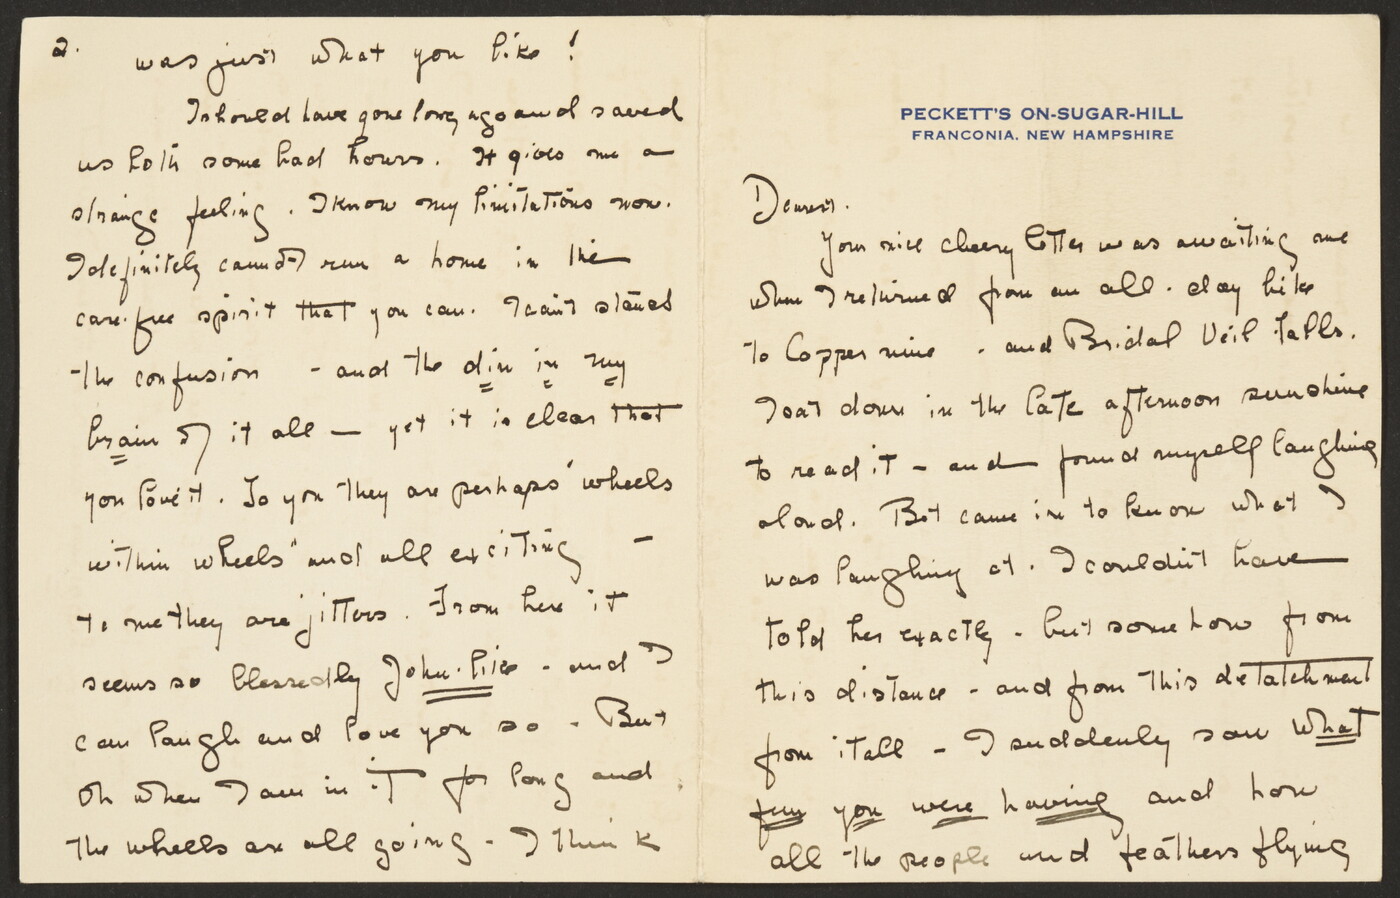 PECKETT'S ON-SUGAR-HILL
FRANCONIA. NEW HAMPSHIRE
Dearest.
Your nice cheery letter was awaiting me
when I returned from an all-day hike
to Copper mine - and Bridal Veil Falls.
I sat down in the late afternoon sunshine
to read it - and found myself laughing
aloud. Bet came in to know what I
was laughing at. I couldn't have
told her exactly - but somehow from
this distance - and from this detatchment
from it all - I suddenly saw what
fun you were having and how
all the people and feathers flying
2.
was just what you like!
I should have gone long ago and saved
us both some bad hours. It gives me a
strange feeling. I know my limitations now.
I definitely cannot run a home in the
care-free spirit that you can. I can't stand
the confusion - and the din in my
brain of it all — yet it is clear that
you love it. To you they are perhaps "wheels
within wheels" and all exciting -
to me they are jitters. From here it
seems so blessedly John-like - and I
can laugh and love you so - But
Oh when I am in it for long and
the wheels are all going - I think